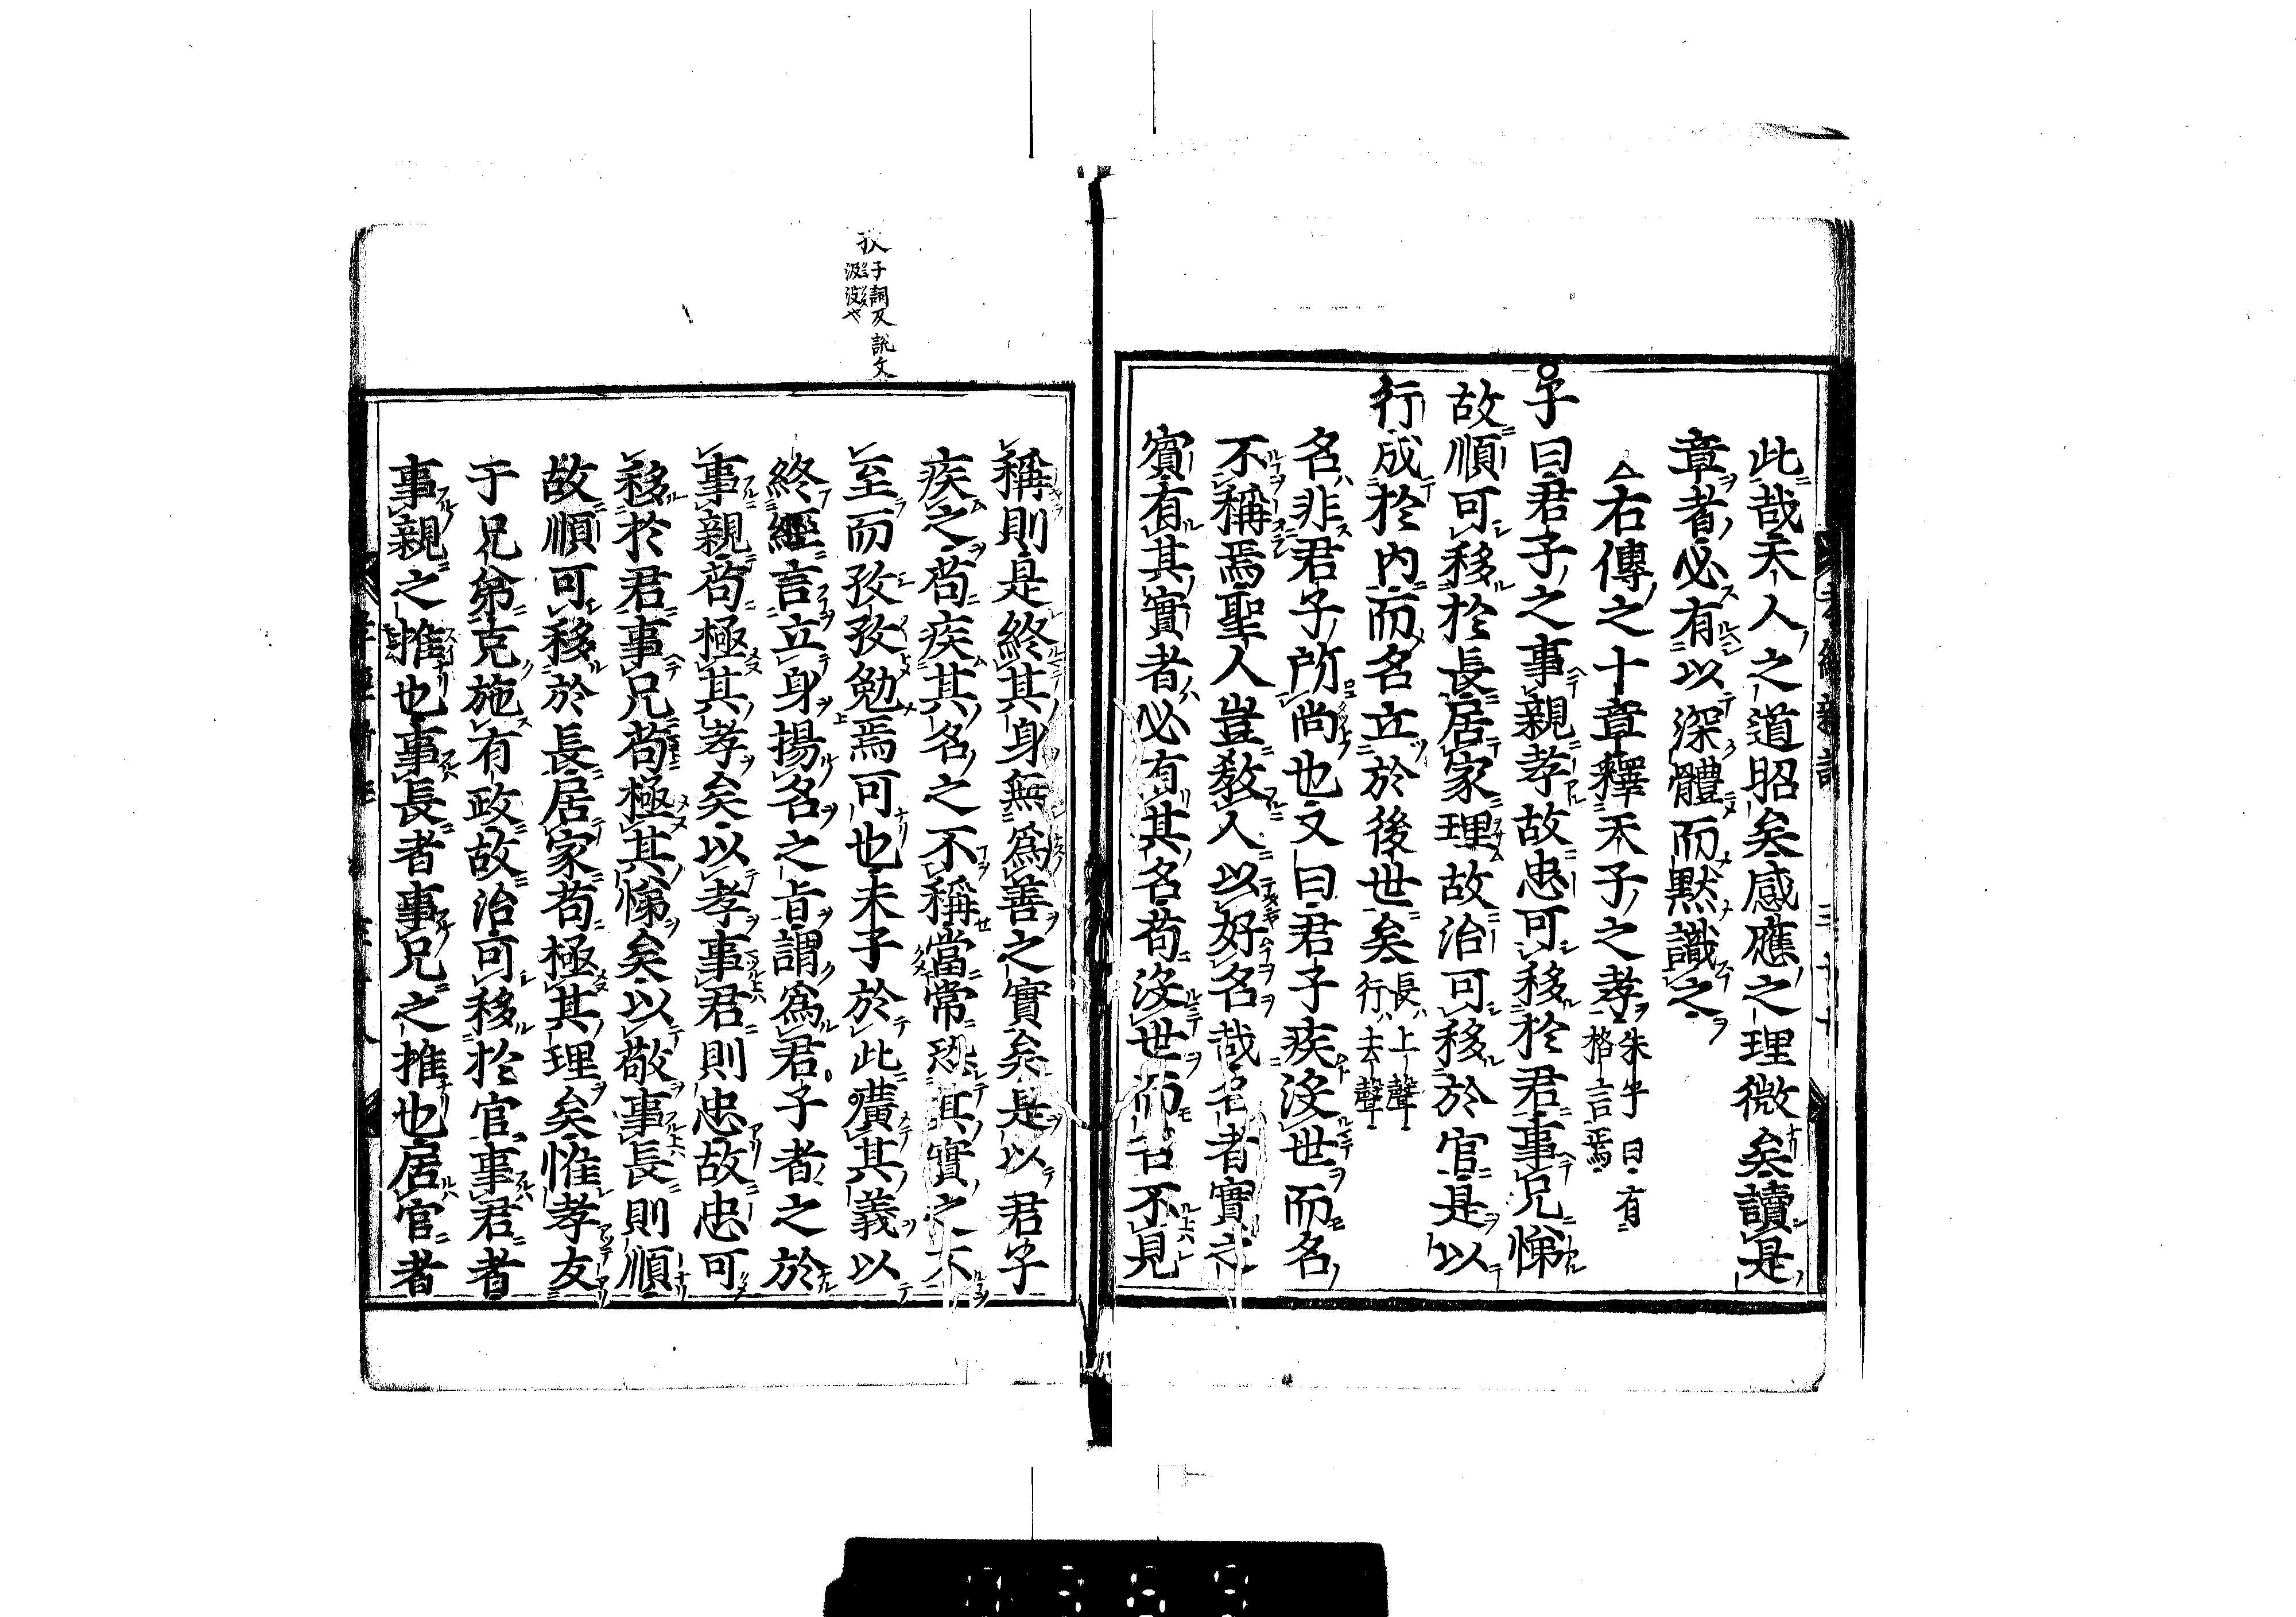 此哉天人之道昭矣感應之理微矣讀是
章者必有以深體而默識之
右傳之十章釋天子之孝朱子曰有
格言焉
子曰君子之事親孝故忠可移於君事兄悌
故順可移於長居家理故治可移於官是以
行成於内而名立於後世矣長上聲
行去聲
名非君子所尚也又曰君子疾没世而名
不稱焉聖人豈教人以好名哉名者實之
賓有其實者必有其名苟没世而名不見
孜子詞反說文
汲汲也
稱則是終其身無為善之實矣是以君子
疾之苟疾其名之不稱當常恐其實之不
至而孜孜勉焉可也朱子於此廣其義以
終經言立身揚名之旨謂為君子者之於
事親苟極其孝矣以孝事君則忠故忠可
移於君事兄苟極其悌矣以敬事長則順
故順可移於長居家苟極其理矣惟孝友
于兄弟克施有政故治可移於官事君者
事親之推也事長者事兄之推也居官者